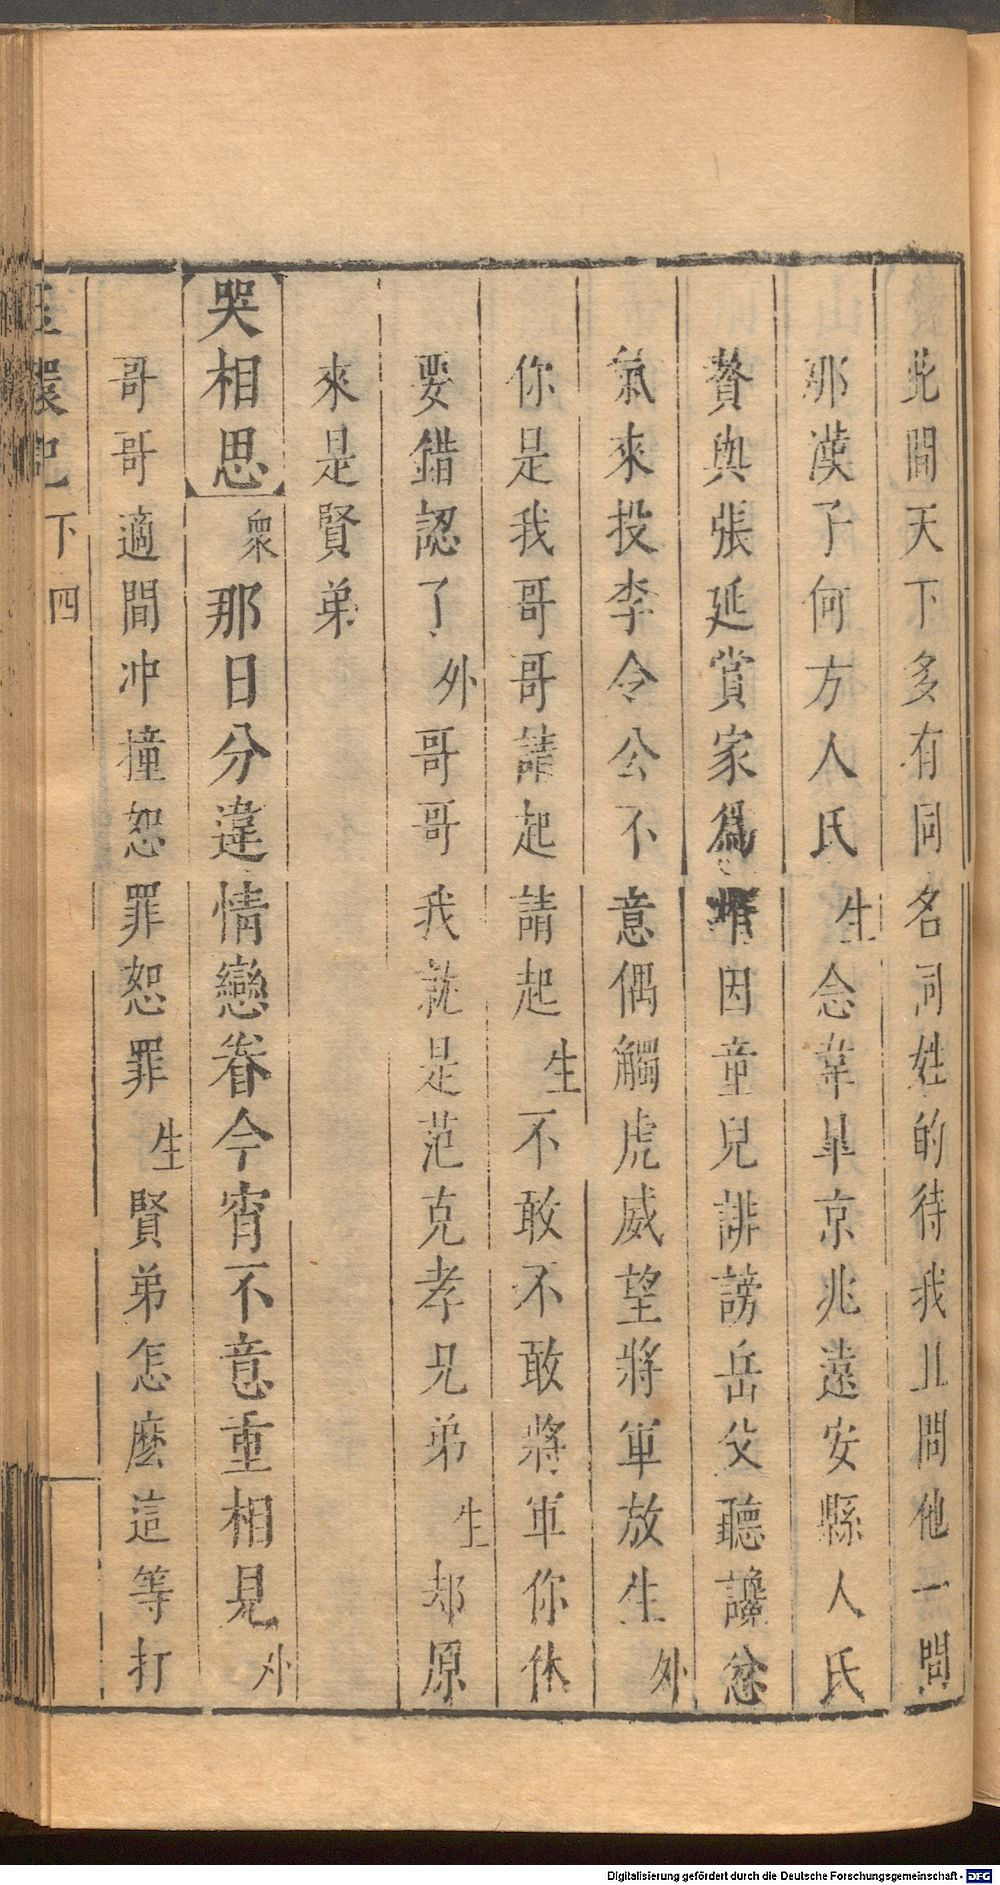 此間天下多有同名同姓的待我且問他一問
那漢子何方人氏生念韋皐京兆遠安縣人氏
贅與張延賞家爲壻因童兒誹謗岳父聽讒忿
氣來投李令公不意偶觸虎威望將軍放生外
你是我哥哥請起請起生不敢不敢將軍你休
要錯認了外哥哥我就是范克孝兄弟生却原
來是賢弟
哭相思衆那日分違情戀眷今宵不意重相見外
哥哥適間冲撞恕罪恕罪生賢弟怎麽這等打
玉環記 下 四
Digitalisierung gefördert durch die Deutsche Forschungsgemeinschaft - DFG